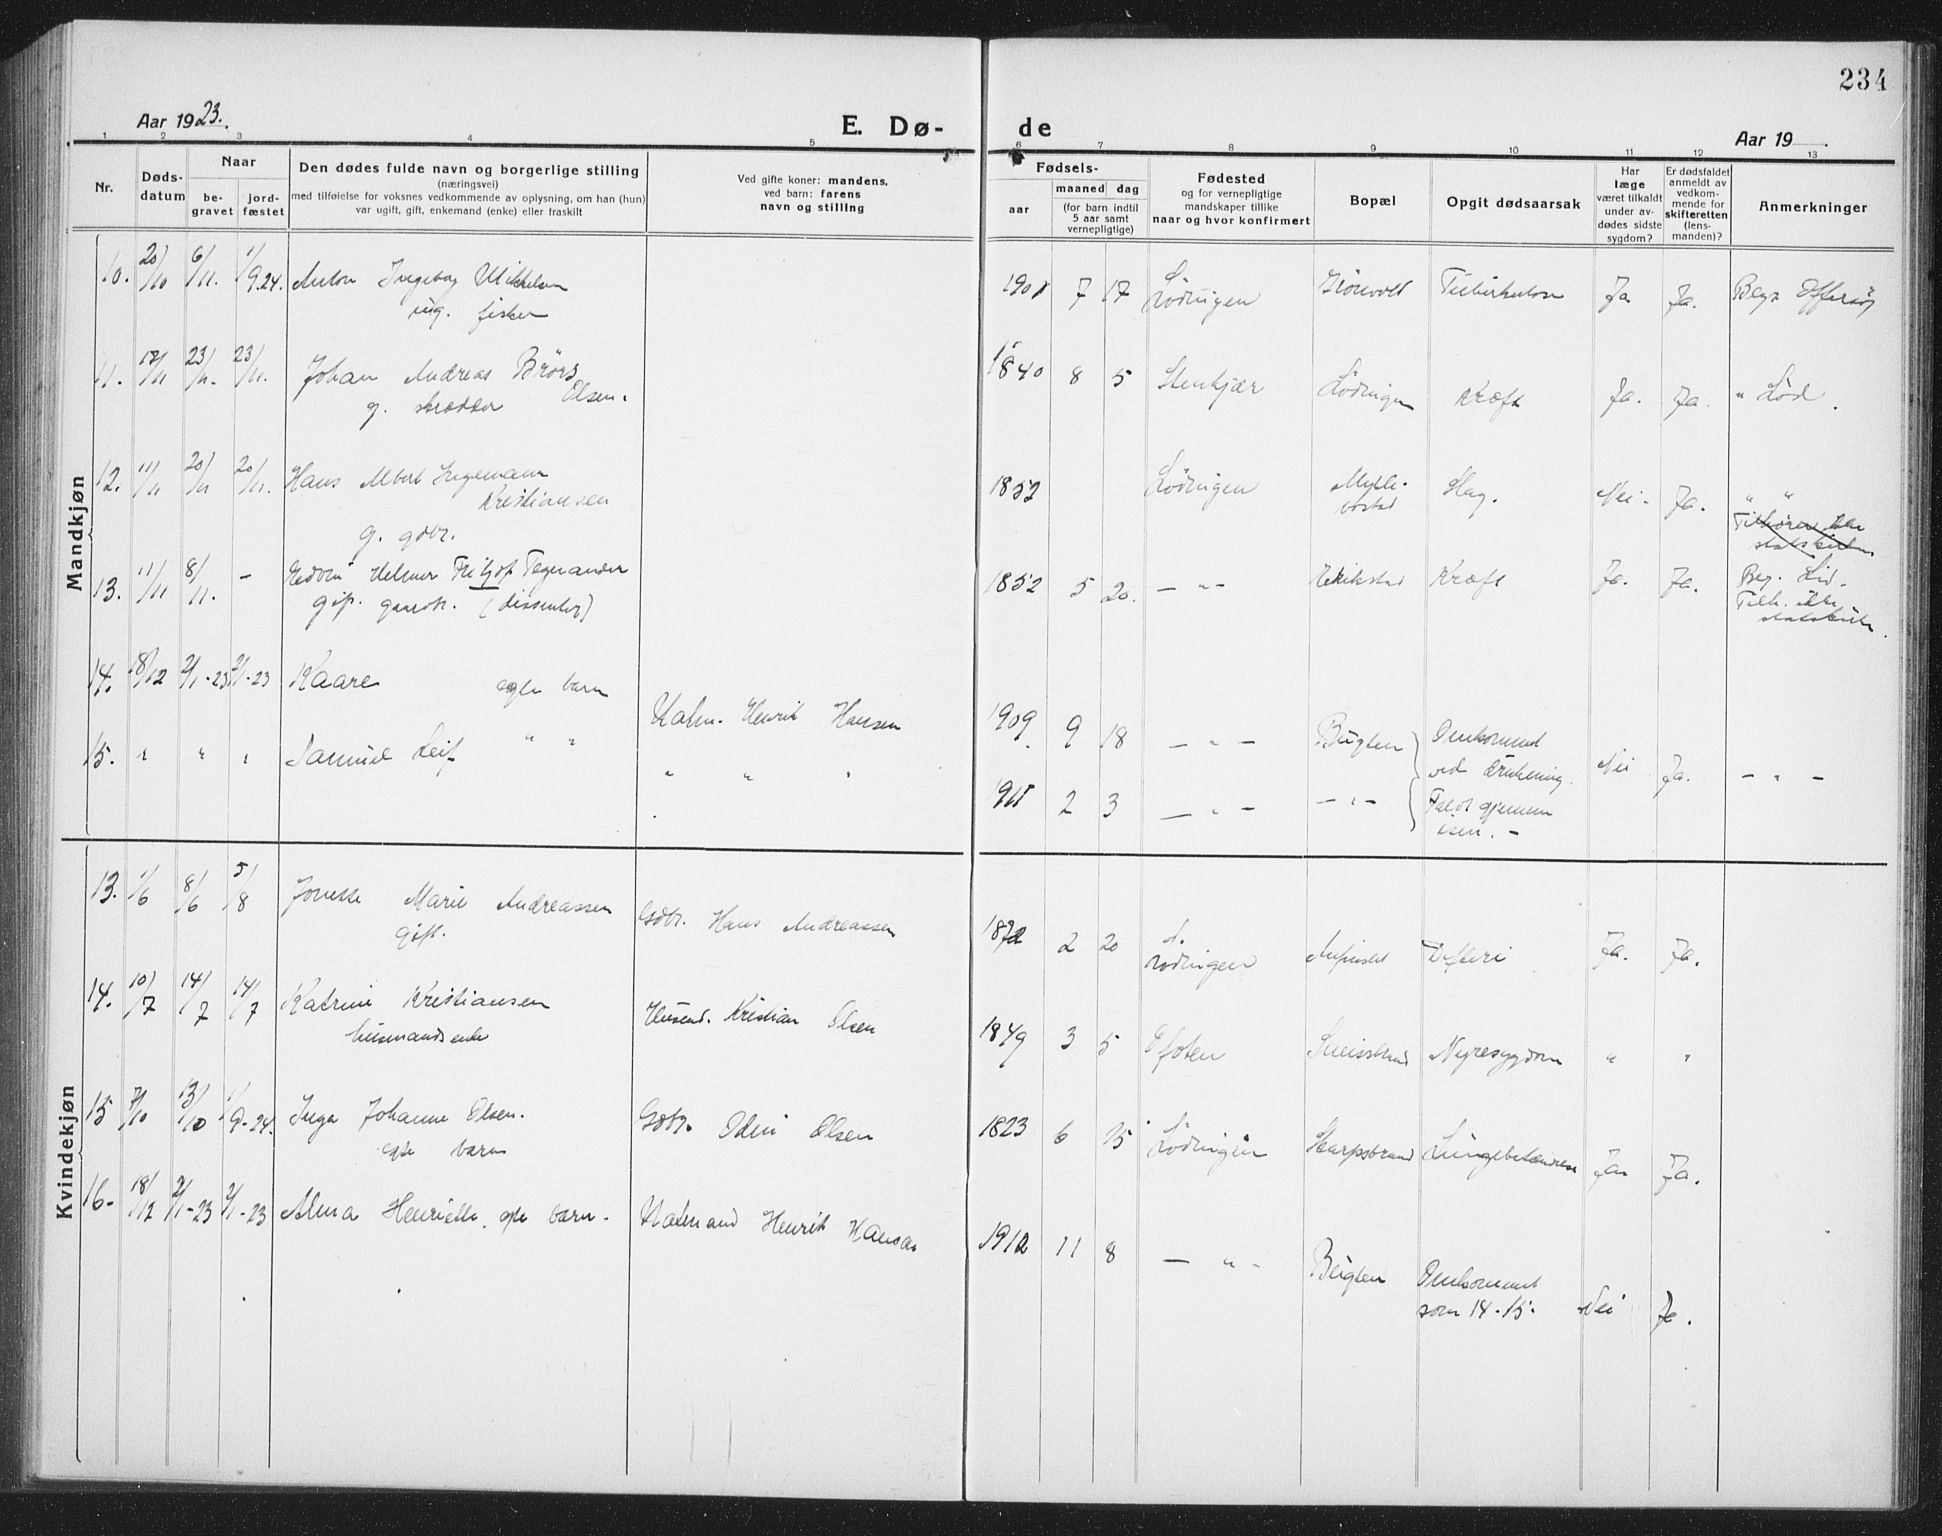 234
Aar 1923.
E. Dø-
de
Aar 19
1 2 3 4 5
6 7 8 9 10 11 12 13
Nr.
Døds-
datum
Naar
be-
gravet
jord-
fæstet
Den dødes fulde navn og borgerlige stilling
(næringsvei)
med tilføielse for voksnes vedkommende av oplysning, om han (hun)
var ugift, gift, enkemand (enke) eller fraskilt
Ved gifte koner: mandens,
ved barn: farens
navn og stilling
Fødsels-
aar
maaned dag
(for barn indtil
5 aar samt
vernepligtige)
Fødested
og for vernepligtige
mandskaper tillike
naar og hvor konfirmert
Bopæl
Opgit dødsaarsak
Har
læge
været tilkaldt
under av-
dødes sidste
sygdom?
Er dødsfaldet
anmeldt av
vedkom-
mende for
skifteretten
(lens-
manden)?
Anmerkninger
Mandkjøn
10. 20/10 6/11. 1/9.24. Anton Ingebrg Mikkelsen 1901 7 17 Lødingen Tuberkulose Ja Ja. Begr Offersøy
ug. fisker
11. 23/11. 23/11. Johan Andreas Brørs 1840 8 5 Stenkjær Lødingen Kræft Ja. Ja. " Lød.
Olsen.
g. skrædder
12. 11/11 20/11 20/11. Hans Albert Ingemann 1852 Lødingen Slag. Nei. Ja. " "
Kristiansen
g. gdbr.
Tilhører ikke
statskirken
13. 11/11 8/11. - Helmer Fritjof Tegnander 1852 5 20. - " - Kræft Ja. Ja. Beg. Lød.
gift. gaardbr. (dissenter) Tilh. ikke
statskirk.
14. 18/12 2/1-23 2/1-23 Kaare egte barn
Henrik Hansen 1909 9 18 - " - Bugten Omkommet
ved drukning.
Nei Ja. - " -
15. " " " Samuel Leif " "
" " " 1911 2 3 - " - - " - Faldt gjennem
isen. -
Kvindekjøn
13. 1/6 8/6 5/8 Marie Andreassen Gdbr. Hans Andreassen 1872 2 20 Lødingen Ja. Ja.
gift.
14. 10/7 14/7 14/7 Katrine Kristiansen Husmd. Kristian Olsen 1849 3 5 Ofoten Nyresygdom " "
husmandsenke
15 7/10 13/10 1/9-24. Inga Johanne Olsen. Gdbr. Odin Olsen 1823 6 15 Lødingen Skarpstrand Lungebetændelse Ja Ja.
egte barn
16- 18/12 2/1-23 2/1-23 Alma Henriette, egte barn. Henrik Hansen 1912 11 8 - " - Bugten Omkommet
som 14-15. Nei Ja.